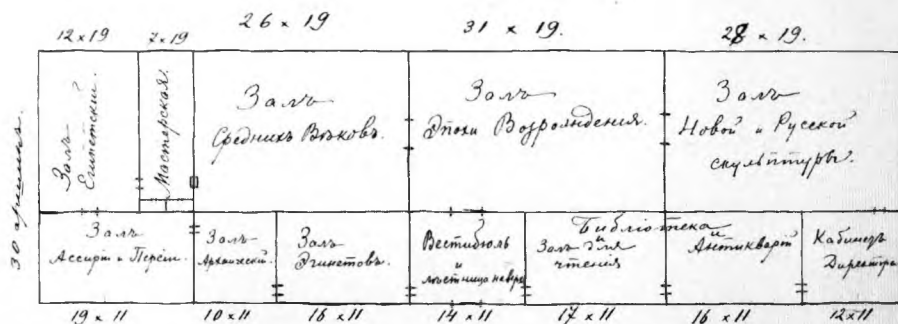 12 x 19 7 x 19 26 x 19 31 x 19. 28 x 19.
30 аршинъ.
Залъ
Египетскій.
Мастерская.
Залъ
Среднихъ Вѣковъ.
Залъ
Эпохи Возрожденія.
Залъ
Новой и Русской
скульптуры.
Залъ
Ассиріи и Персіи.
Залъ
Архаическій
Залъ
Эгинетовъ.
Вестибюль
и
лѣстница наверхъ
Библіотека
и
Залъ для
чтенія
Антикварій
Кабинетъ
Директора
19 x 11 10 x 11 16 x 11 14 x 11 17 x 11 16 x 11 12 x 11